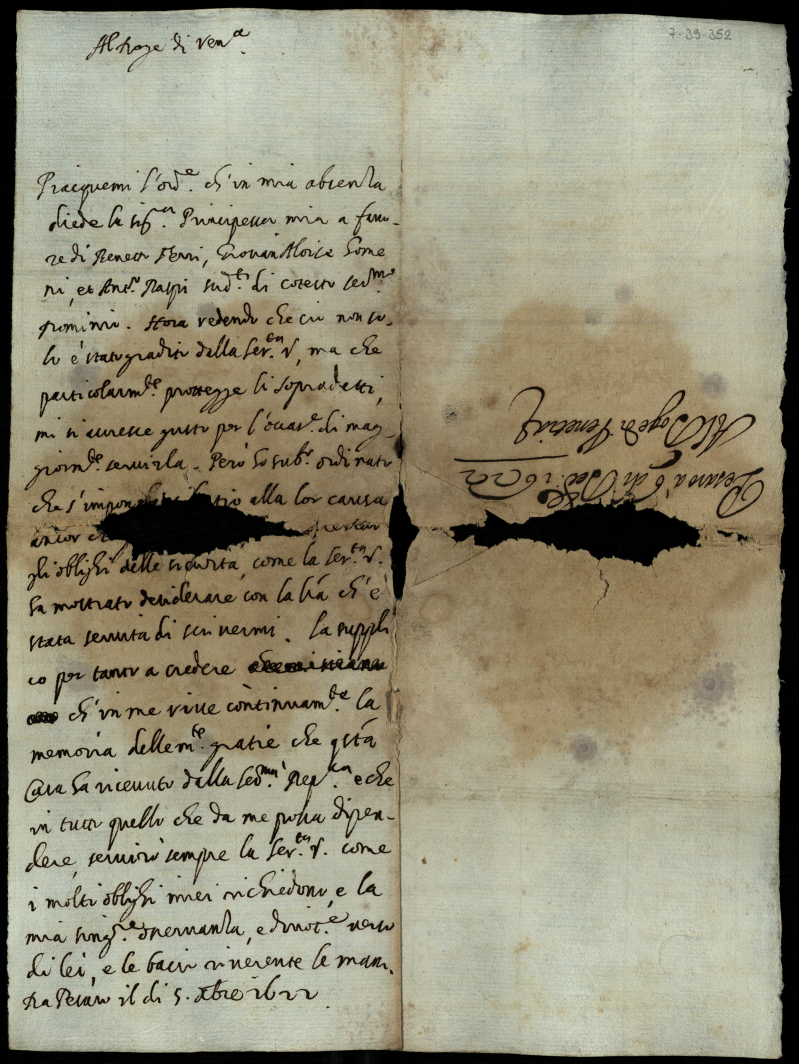 Al Doge di Ven.a
7-39-352
Piacquemi l'ord.e ch'in mia absenza
diede la Sig.ra Principessa mia a favo-
re di Benetto Ferri, Giovan Aloise Gome
ni, et Ant.o Raspi sud.ti di cotesto Ser.mo
Dominio. Hora vedendo che ciò non so-
lo è stato gradito dalla Ser.tà V., ma che
particolarm.te protegge li sopradetti,
mi si accresce gusto per l'occas.e di mag-
giorm.te servirla. Però ho sub.o ordinato
che s'impon silentio alla lor causa
ancor
gli oblighi delle sicurtà, come la Ser.tà V.
ha mostrato desiderare con la l'ra ch'è
stata servita di scrivermi. La suppli
co per tanto a credere
ch'in me vive continuam.te la
memoria delle m.te gratie che q'sta
Casa ha ricevuto dalla Ser.ma Rep.ca e che
in tutto quello che da me possa dipen-
dere, servirò sempre la Ser.tà V. come
i molti oblighi miei richiedono, e la
mia sing.re osservanza, e divot.e verso
di lei, e le bacio riverente le mani.
Da Pesaro il dì 5. Xbre 1622
Pesaro a 6 di Xbre 1622
Al Doge di Venetia